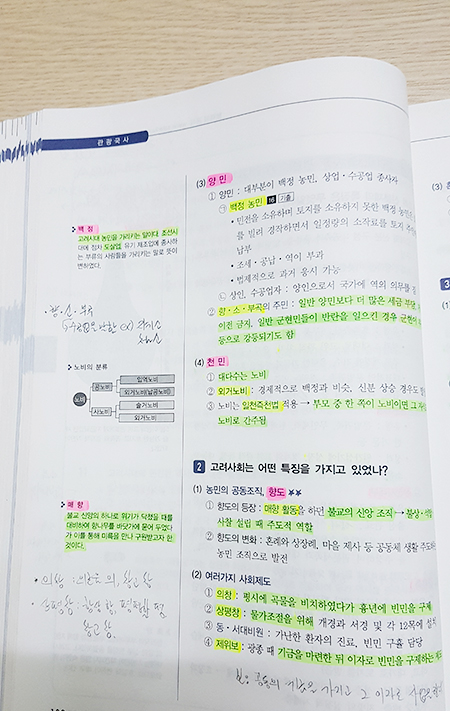 관광국사
(3) 양민
① 양민 : 대부분이 백정 농민, 상업·수공업 종사자
㉠ 백정 농민 16 기출
• 민전을 소유하며 토지를 소유하지 못한 백정 농민은
를 빌려 경작하면서 일정량의 소작료를 토지 주인
납부
• 조세·공납·역이 부과
• 법제적으로 과거 응시 가능
㉡ 상인, 수공업자 : 양인으로서 국가에 역의 의무를
② 향·소·부곡의 주민 : 일반 양민보다 더 많은 세금 부담,
이전 금지, 일반 군현민들이 반란을 일으킨 경우 군현이
등으로 강등되기도 함
(4) 천민
① 대다수는 노비
② 외거노비 : 경제적으로 백정과 비슷, 신분 상승 경우도
③ 노비는 일천즉천법 적용 → 부모 중 한 쪽이 노비이면 그
노비로 간주됨
2 고려사회는 어떤 특징을 가지고 있었나?
(1) 농민의 공동조직, 향도 ★★
① 향도의 등장 : 매향 활동을 하던 불교의 신앙 조직 → 불상·석탑
사찰 설립 때 주도적 역할
② 향도의 변화 : 혼례와 상장례, 마을 제사 등 공동체 생활 주도하는
농민 조직으로 발전
(2) 여러가지 사회제도
① 의창 : 평시에 곡물을 비치하였다가 흉년에 빈민을 구제
② 상평창 : 물가조절을 위해 개경과 서경 및 각 12목에 설치
③ 동·서대비원 : 가난한 환자의 진료, 빈민 구휼 담당
④ 제위보 : 광종 때 기금을 마련한 뒤 이자로 빈민을 구제하는
▶ 백정
고려시대 농민을 가리키는 말이다. 조선시
대에 점차 도살업, 유기 제조업에 종사하
는 부류의 사람들을 가리키는 말로 뜻이
변하였다.
향·소·부곡
▶ 노비의 분류
노비
공노비
입역노비
외거노비(납공노비)
사노비
솔거노비
외거노비
▶ 매향
불교 신앙의 하나로 위기가 닥쳤을 때를
대비하여 향나무를 바닷가에 묻어 두었다
가 이를 통해 미륵을 만나 구원받고자 한
것이다.
• 의창 :
• 상평창 :